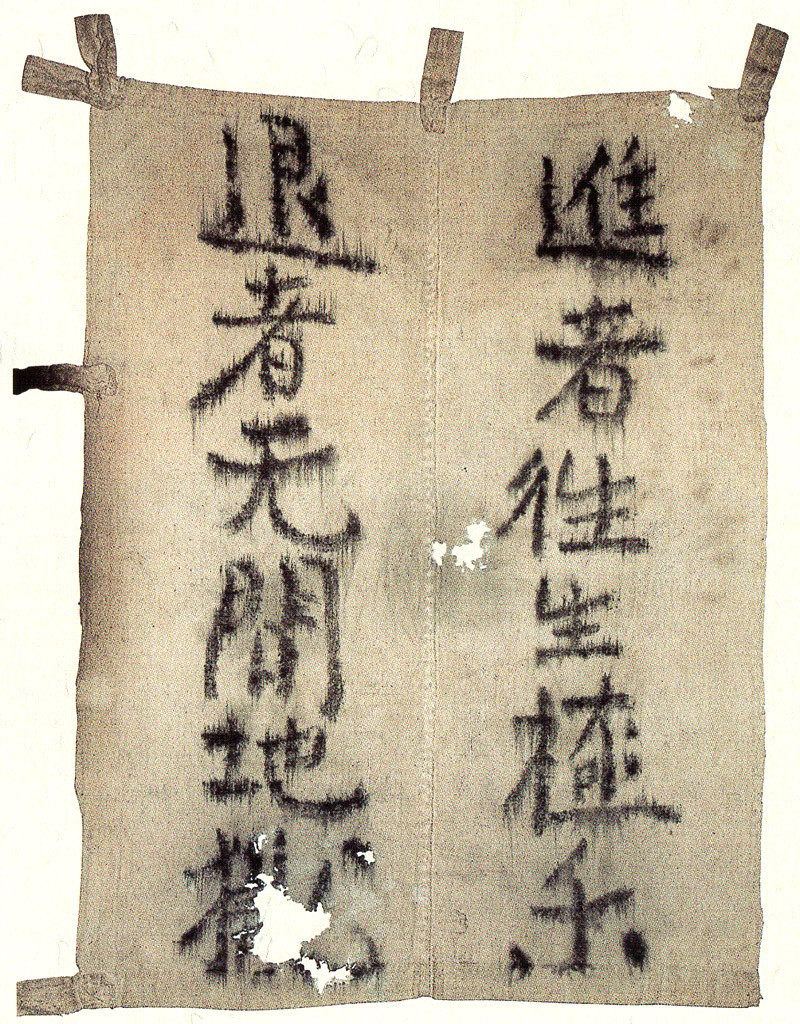 進者往生極乐
退者无間地獄